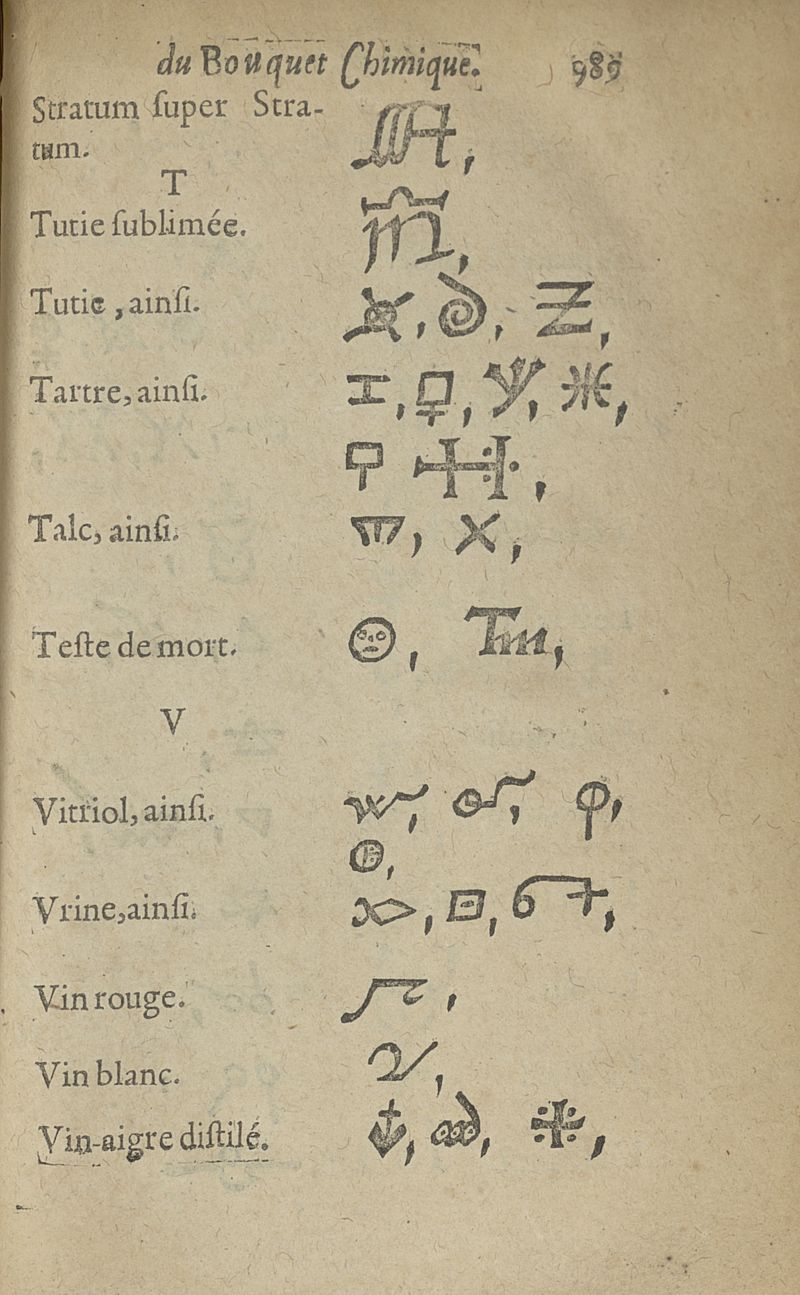 du Bouquet Chimique. 989
Stratum ſuper Stra-
tum.
T
Tutie ſublimée.
Tutie, ainſi.
Tartre, ainſi.
Talc, ainſi.
Teſte de mort.
V
Vitriol, ainſi.
Vrine, ainſi.
Vin rouge.
Vin blanc.
Vin-aigre diſtilé.